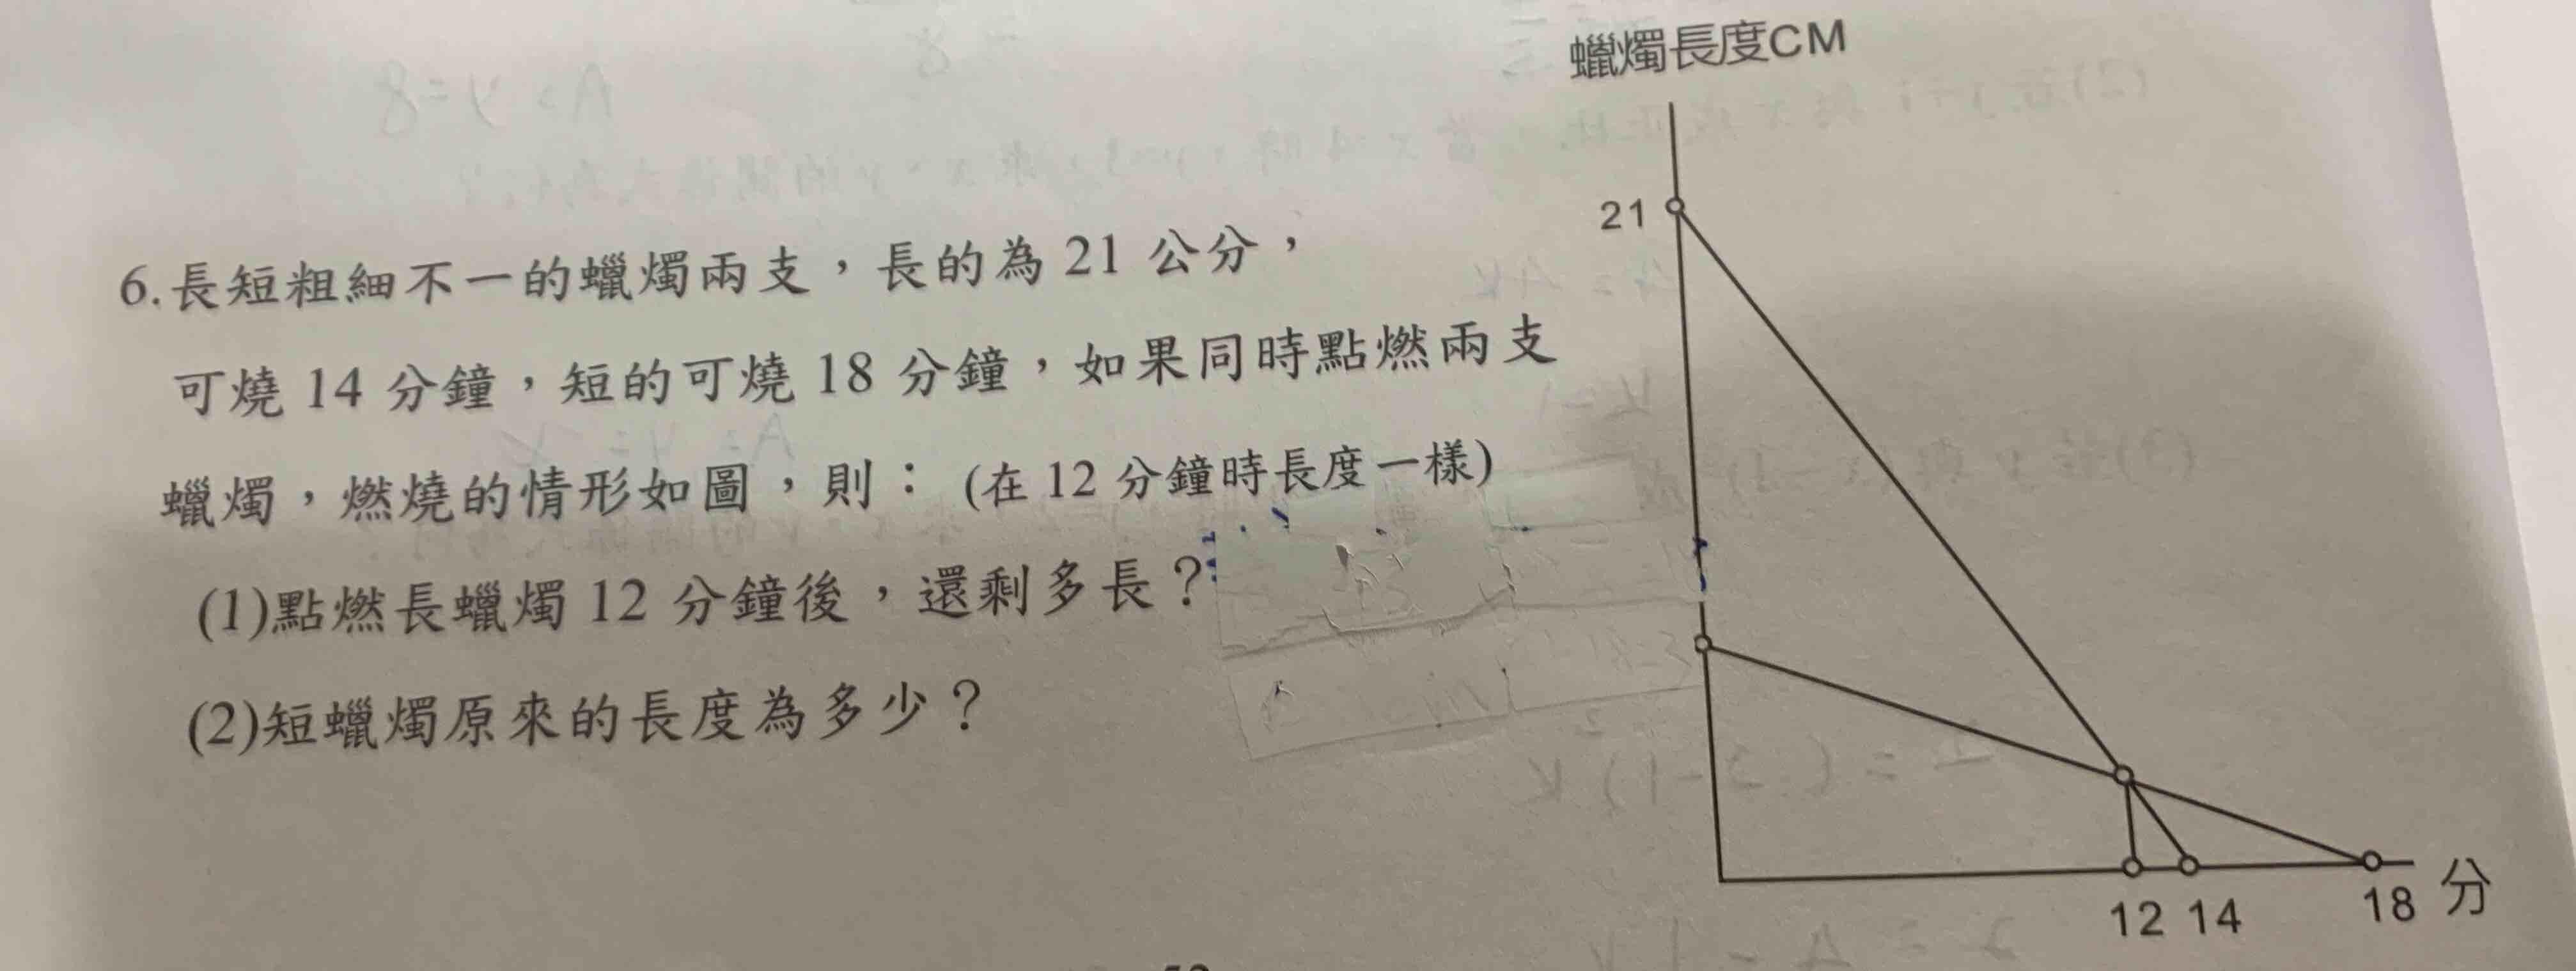 蠟燭長度CM
21
6.長短粗細不一的蠟燭兩支，長的為 21 公分，
可燒 14 分鐘，短的可燒 18 分鐘，如果同時點燃兩支
蠟燭，燃燒的情形如圖，則：(在 12 分鐘時長度一樣)
(1)點燃長蠟燭 12 分鐘後，還剩多長？
(2)短蠟燭原來的長度為多少？
12 14 18 分